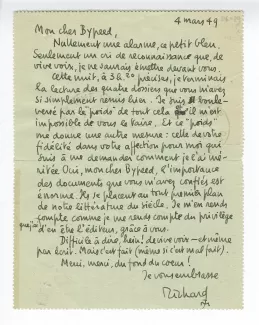 4 mars 49
Mon cher Bypeed,
Nullement une alarme, ce petit bleu.
Seulement un cri de reconnaissance que, de
vive voix, je ne saurais émettre devant vous.
Cette nuit, à 3h.20 précises, je terminais
la lecture des quatre dossiers que vous m'avez
si simplement remis hier. Je suis boule-
versé par le poids de tout cela il m'est
impossible de vous le taire. Et ce poids
me donne une autre mesure: celle de votre
fidélité dans votre affection pour moi qui
suis à me demander comment je l'ai mé-
ritée. Oui, mon cher Bypeed, l'importance
des documents que vous m'avez confiés est
énorme. Ils se placent au tout premier plan
de notre littérature du siècle. Je m'en rends
compte comme je me rends compte du privilège
que j'ai d'en être l'éditeur, grâce à vous.
Difficile à dire, hein! de vive voix — et même
par écrit. Mais c'est fait (même si c'est mal fait).
Merci, merci, du fond du cœur!
Je vous embrasse
Richard